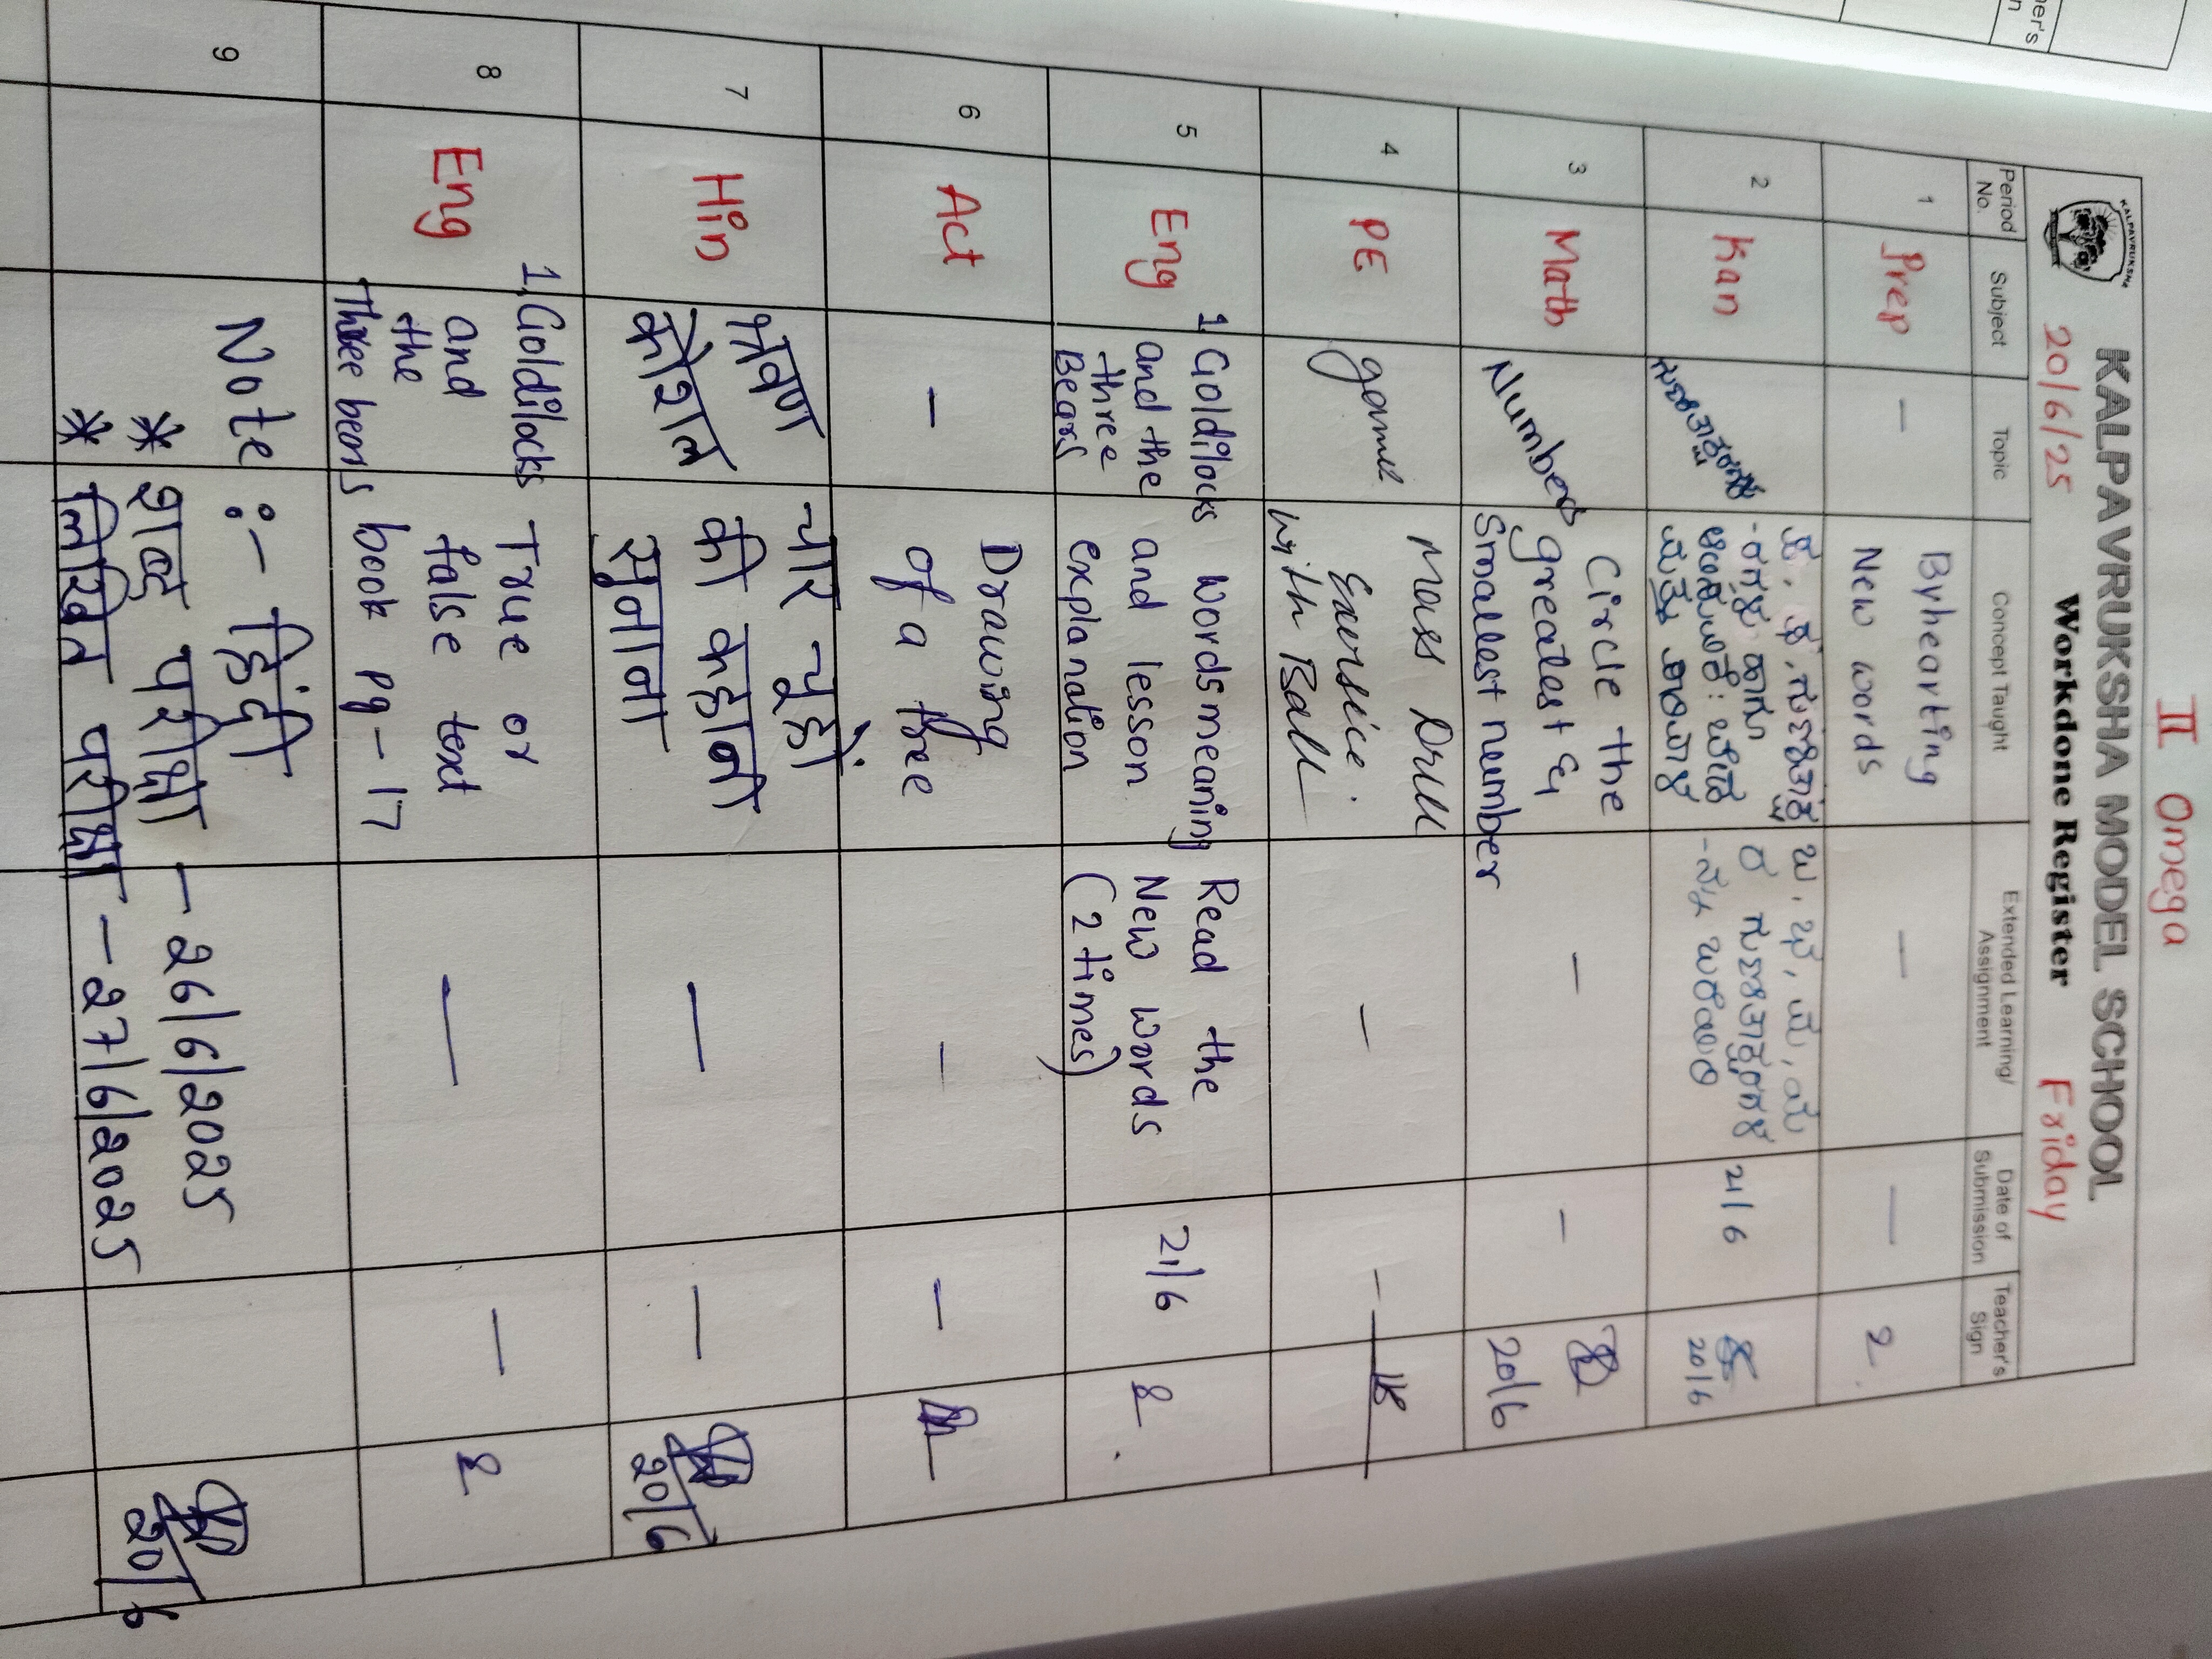 II Omega
KALPAVRUKSHA MODEL SCHOOL
20/6/25 Workdone Register Friday
Period No. Subject Topic Concept Taught Extended Learning/ Assignment Date of Submission Teacher's Sign
1 Prep — Byhearting
New words — —
2 Kan ಗುಣಿತಾಕ್ಷರ
21/6
20/6
3 Math Number Circle the
greatest &
Smallest number — —
20/6
4 PE game Mass Drill
Exersice.
with Ball — —
5 Eng 1 Goldilocks
and the
three
Bears
Words meaning
and lesson
explanation
Read the
New words
(2 times)
21/6
6 Act — Drawing
of a tree — —
7 Hin श्रवण
कौशल
चार चूहों
की कहानी
सुनाना
— —
20/6
8 Eng 1. Goldilocks
and
the
Three bears
True or
false text
book pg - 17
— —
9 Note :- हिंदी
* शब्द परीक्षा - 26/6/2025
* लिखित परीक्षा - 27/6/2025
20/6